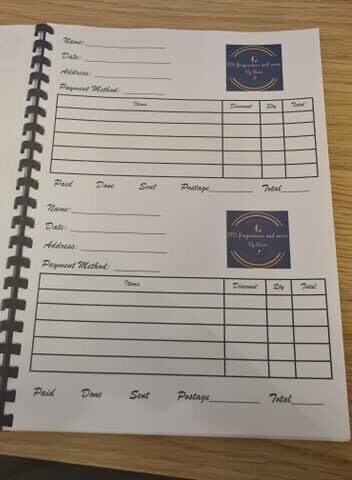 Name:
Date:
Address:
Payment Method:
and more
By
Items Discount Qty Total
Paid Done Sent Postage Total
Name:
Date:
Address:
Payment Method:
and more
By
Items Discount Qty Total
Paid Done Sent Postage Total